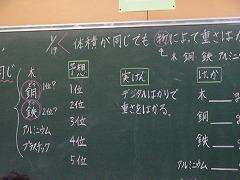 1/19 体積が同じでも 物によって重さはか
木 銅 鉄 アルミニ
同じ
木
銅 1位?
鉄 2位?
アルミニウム
プラスチック
予想
1位
2位
3位
4位
5位
実けん
デジタルはかりで
重さをはかる。
けっか
木 g
銅
鉄
アルミニウム